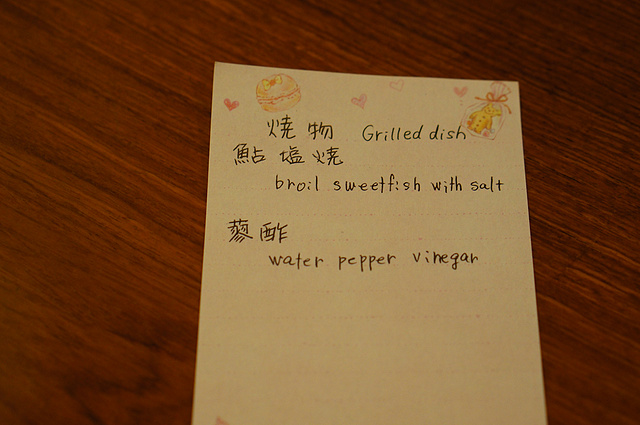 焼物 Grilled dish
鮎塩焼
broil sweetfish with salt
蓼酢
water pepper vinegar